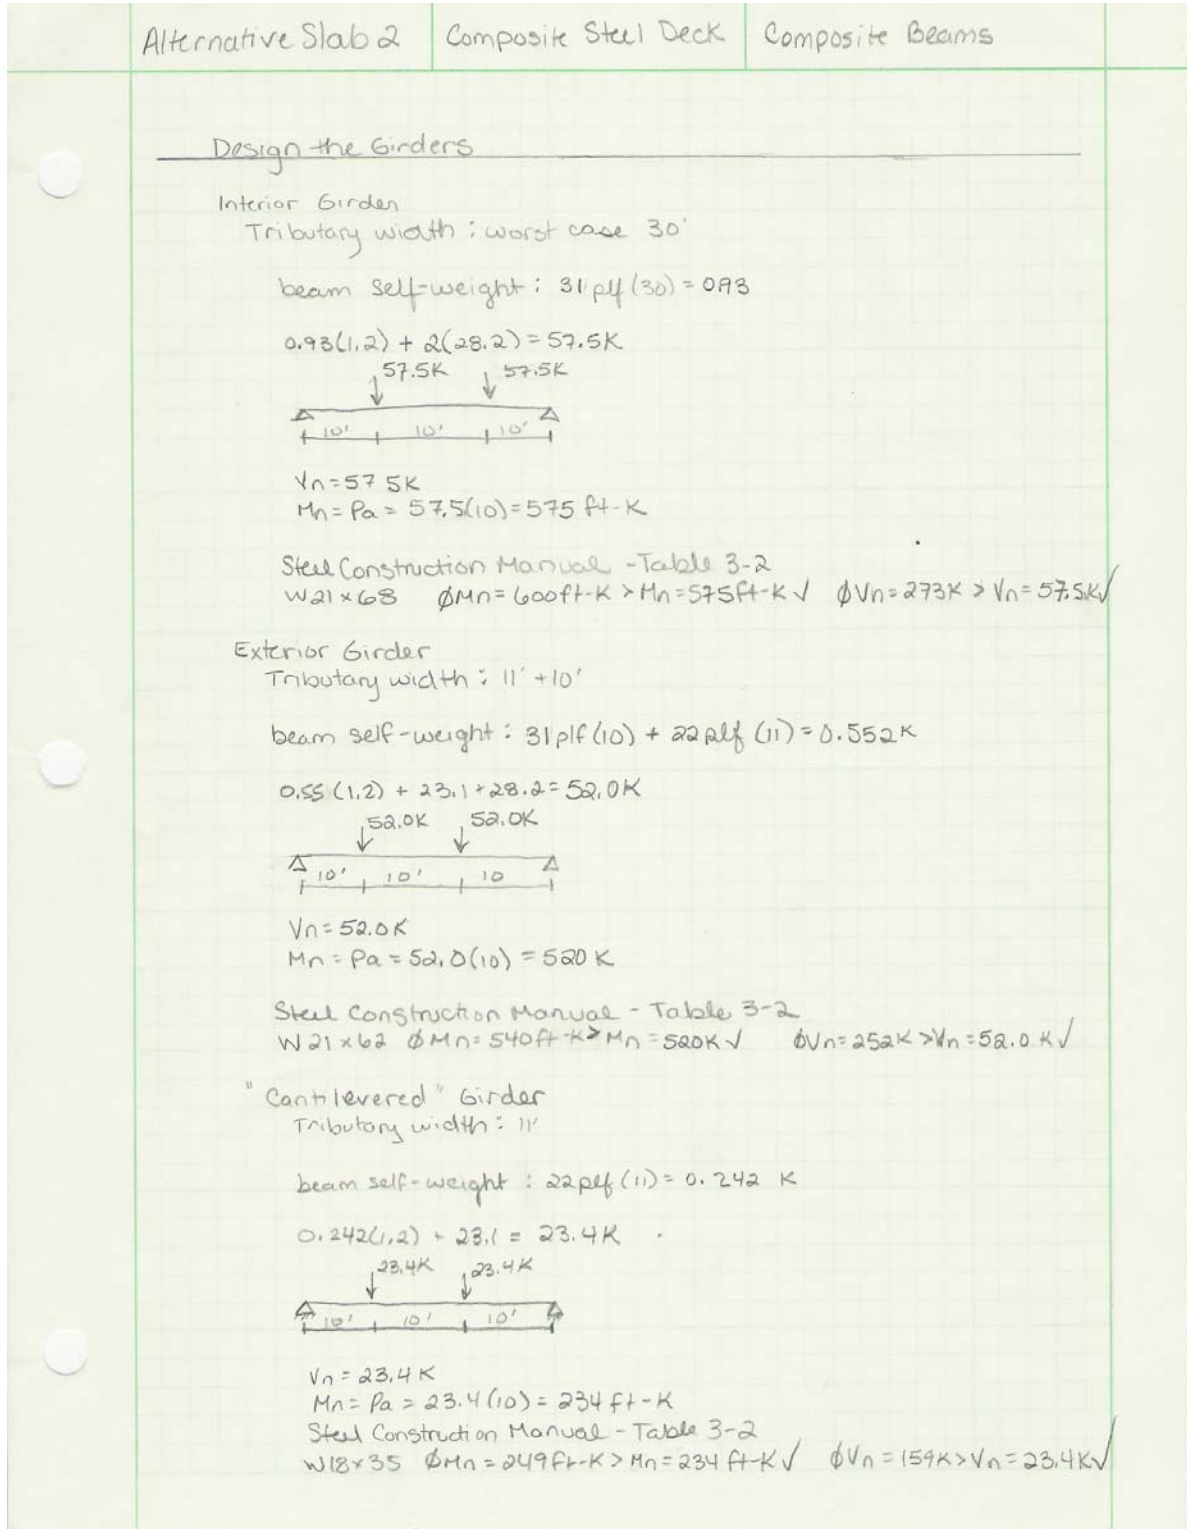 Alternative Slab 2 Composite Steel Deck Composite Beams
Design the Girders
Interior Girder
Tributary width : worst case 30'
beam self-weight : 31 plf (30) = 0.93
0.93(1.2) + 2(28.2) = 57.5K
57.5K 57.5K
10' 10' 10'
Vn = 57.5K
Mn = Pa = 57.5(10) = 575 ft-K
Steel Construction Manual - Table 3-2
W21×68 ϕMn = 600ft-K > Mn = 575ft-K √ ϕVn = 273K > Vn = 57.5K√
Exterior Girder
Tributary width : 11' + 10'
beam self-weight : 31 plf (10) + 22 plf (11) = 0.552 K
0.55 (1.2) + 23.1 + 28.2 = 52.0K
52.0K 52.0K
10' 10' 10
Vn = 52.0K
Mn = Pa = 52.0(10) = 520 K
Steel Construction Manual - Table 3-2
W21×62 ϕMn = 540ft-K > Mn = 520K √ ϕVn = 252K > Vn = 52.0 K √
"Cantilevered" Girder
Tributary width : 11'
beam self-weight : 22 plf (11) = 0.242 K
0.242(1.2) + 23.1 = 23.4K
23.4K 23.4K
10' 10' 10'
Vn = 23.4 K
Mn = Pa = 23.4(10) = 234 ft-K
Steel Construction Manual - Table 3-2
W18×35 ϕMn = 249ft-K > Mn = 234 ft-K √ ϕVn = 159K > Vn = 23.4K√